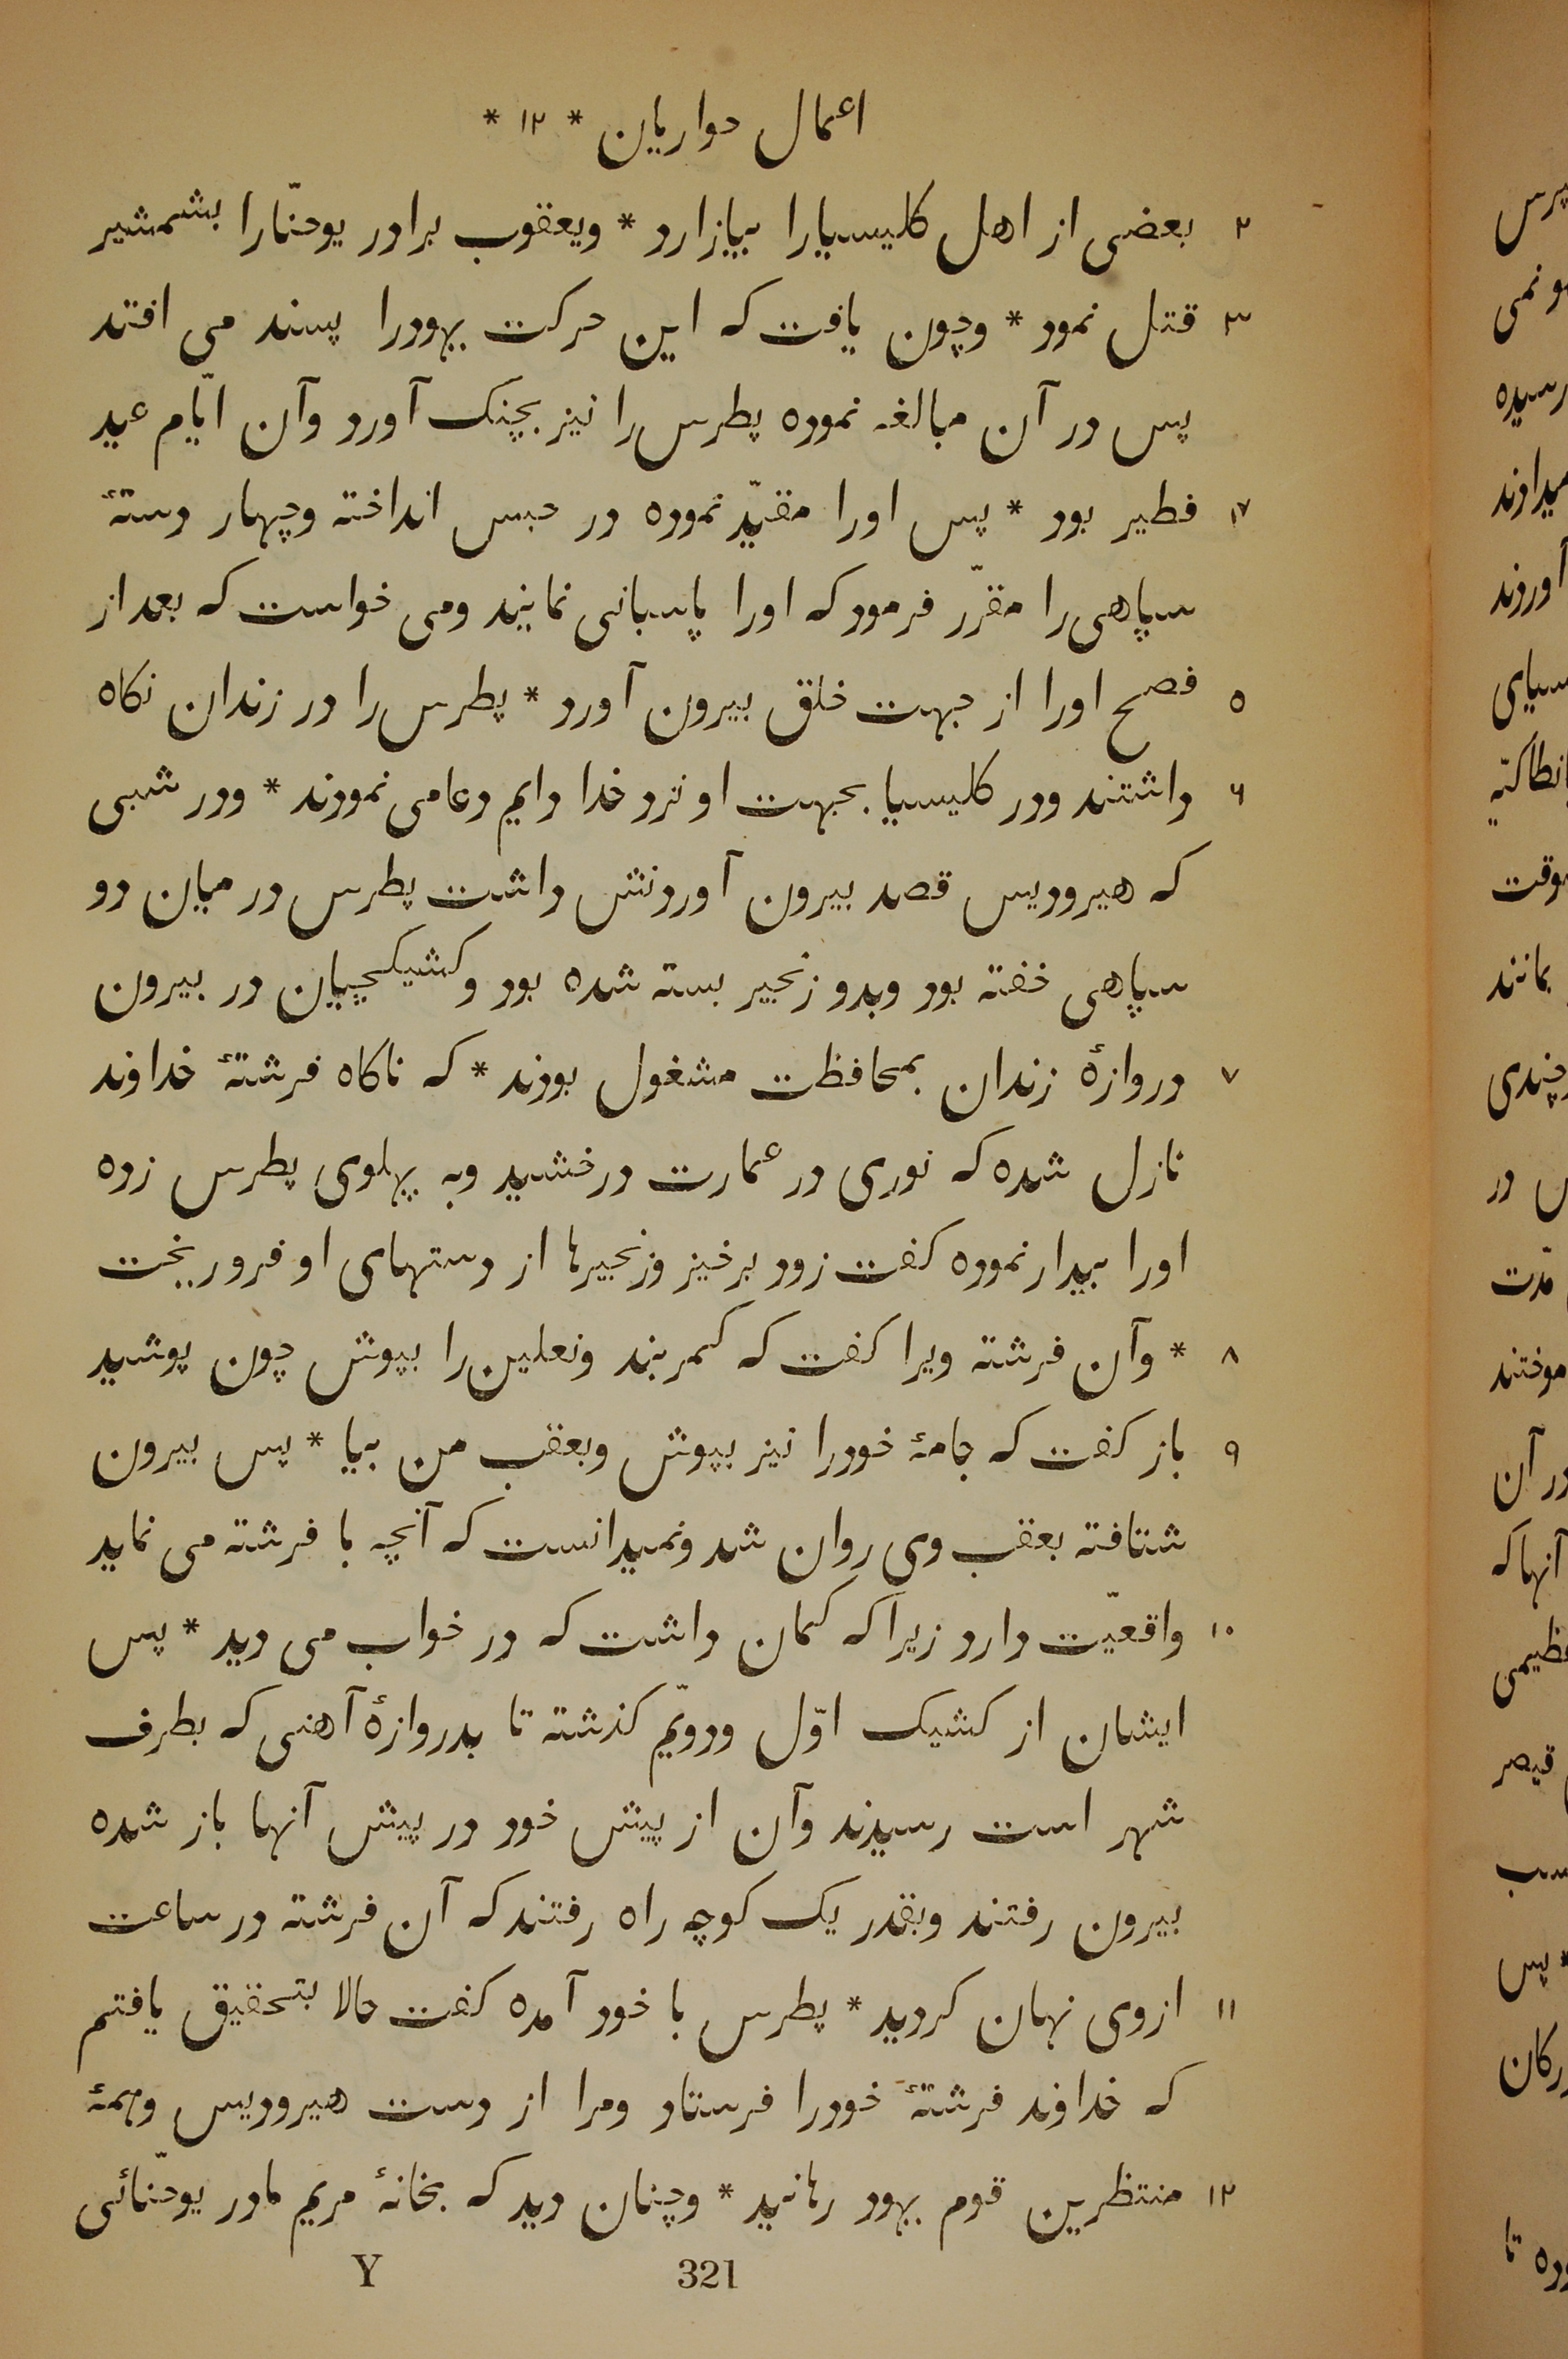 اعمال حواریان * ۱۲ *
۲ بعضی از اهل کلیسیارا بیازارد * ویعقوب برادر یوحنّارا بشمشیر
۳ قتل نمود * وچون یافت که این حرکت یهودرا پسند می افتد
پس در آن مبالغه نموده پطرس را نیز بچنک آورد وآن ایّام عید
۴ فطیر بود * پس اورا مقیّد نموده در حبس انداخته وچهار دستهٔ
سپاهی را مقرّر فرمود که اورا پاسبانی نمایند ومی خواست که بعد از
۵ فصح اورا از جهت خلق بیرون آورد * پطرس را در زندان نکاه
۶ داشتند ودر کلیسیا بجهت او نزد خدا دایم دعا می نمودند * ودر شبی
که هیرودیس قصد بیرون آوردنش داشت پطرس در میان دو
سپاهی خفته بود وبدو زنجیر بسته شده بود وکشیکچیان در بیرون
۷ دروازهٔ زندان بمحافظت مشغول بودند * که ناکاه فرشتهٔ خداوند
نازل شده که نوری در عمارت درخشید وبه پهلوی پطرس زده
اورا بیدار نموده کفت زود برخیز وزنجیرها از دستهای او فرو ریخت
۸ * وآن فرشته ویرا کفت که کمر بند ونعلین را بپوش چون پوشید
۹ باز کفت که جامهٔ خودرا نیز بپوش وبعقب من بیا * پس بیرون
شتافته بعقب وی روان شد ونمیدانست که آنچه با فرشته می نماید
۱۰ واقعیّت دارد زیرا که کمان داشت که در خواب می دید * پس
ایشان از کشیک اوّل ودویّم کذشته تا بدروازهٔ آهنی که بطرف
شهر است رسیدند وآن از پیش خود در پیش آنها باز شده
بیرون رفتند وبقدر یک کوچه راه رفتند که آن فرشته در ساعت
۱۱ ازوی نهان کردید * پطرس با خود آمده کفت حالا بتحقیق یافتم
که خداوند فرشتهٔ خودرا فرستاد ومرا از دست هیرودیس وهمهٔ
۱۲ منتظرین قوم یهود رهانید * وچنان دید که بخانهٔ مریم مادر یوحنّائی
321 Y